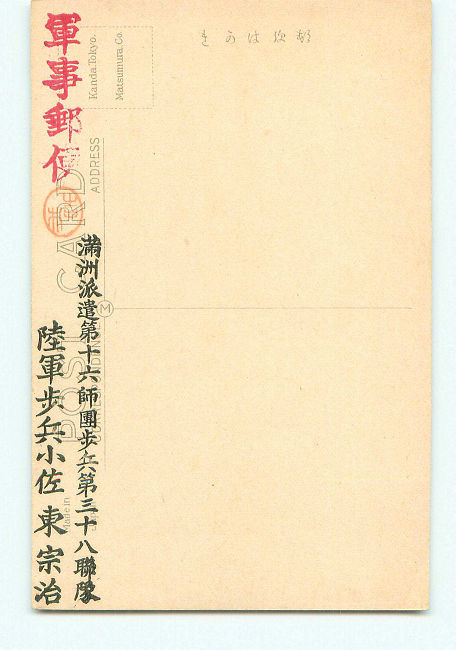 郵便はかき
Kanda.Tokyo.
Matsumura.Co.
POST CARD
ADDRESS
CORRESPONDENCE
M
Made in
軍事郵便
満洲派遣第十六師團歩兵第三十八聯隊
陸軍歩兵小佐 東 宗治